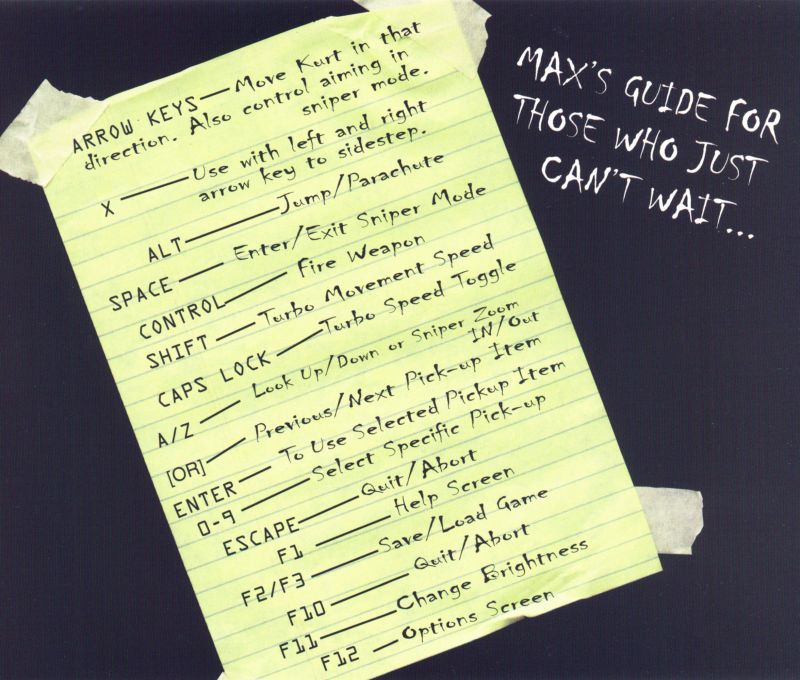 MAX'S GUIDE FOR
THOSE WHO JUST
CAN'T WAIT...
ARROW KEYS—Move Kurt in that
direction. Also control aiming in
sniper mode.
X ——— Use with left and right
arrow key to sidestep.
ALT——— Jump/Parachute
SPACE —— Enter/Exit Sniper Mode
CONTROL—— Fire Weapon
SHIFT —— Turbo Movement Speed
CAPS LOCK —— Turbo Speed Toggle
A/Z —— Look Up/Down or Sniper Zoom
IN/Out
[OR]—— Previous/Next Pick-up Item
ENTER—— To Use Selected Pickup Item
0-9 ——— Select Specific Pick-up
ESCAPE—— Quit/Abort
F1 ——— Help Screen
F2/F3 ——— Save/Load Game
F10 ——— Quit/Abort
F11———Change Brightness
F12 — Options Screen